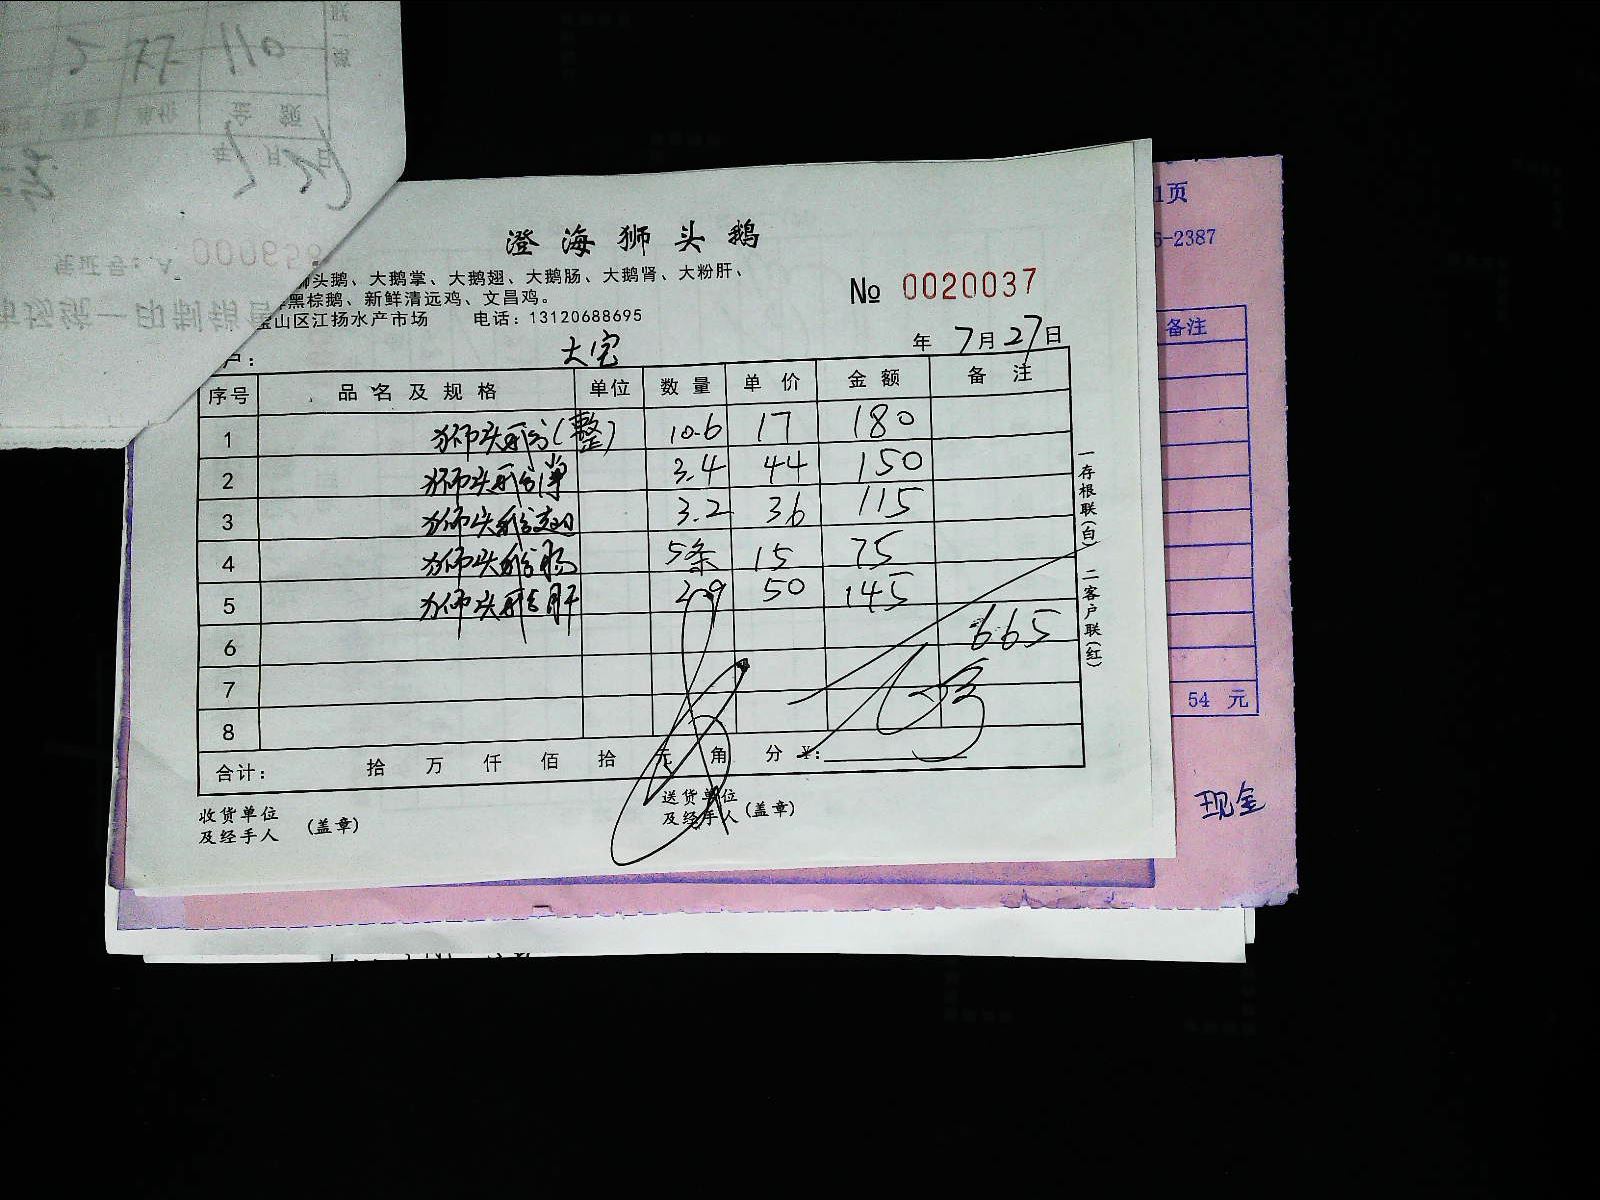 110
77
5
金额
单价
数量
年 月 日
凭证号：A 000658
市场统一印制销售
澄海狮头鹅
狮头鹅、大鹅掌、大鹅翅、大鹅肠、大鹅肾、大粉肝、
黑棕鹅、新鲜清远鸡、文昌鸡。
宝山区江扬水产市场 电话：13120688695
№ 0020037
户： 大宝
年 7月27日
序号 品名及规格 单位 数量 单价 金额 备注
1 狮头鹅(整) 10.6 17 180
2 狮头鹅掌 3.4 44 150
3 狮头鹅翅 3.2 36 115
4 狮头鹅肠 5条 15 75
5 狮头鹅肝 2.9 50 145
6 665
7
8
合计： 拾 万 仟 佰 拾 元 角 分 ¥：
收货单位
及经手人 (盖章)
送货单位
及经手人 (盖章)
一存根联(白) 二客户联(红)
1页
6-2387
备注
54 元
现金